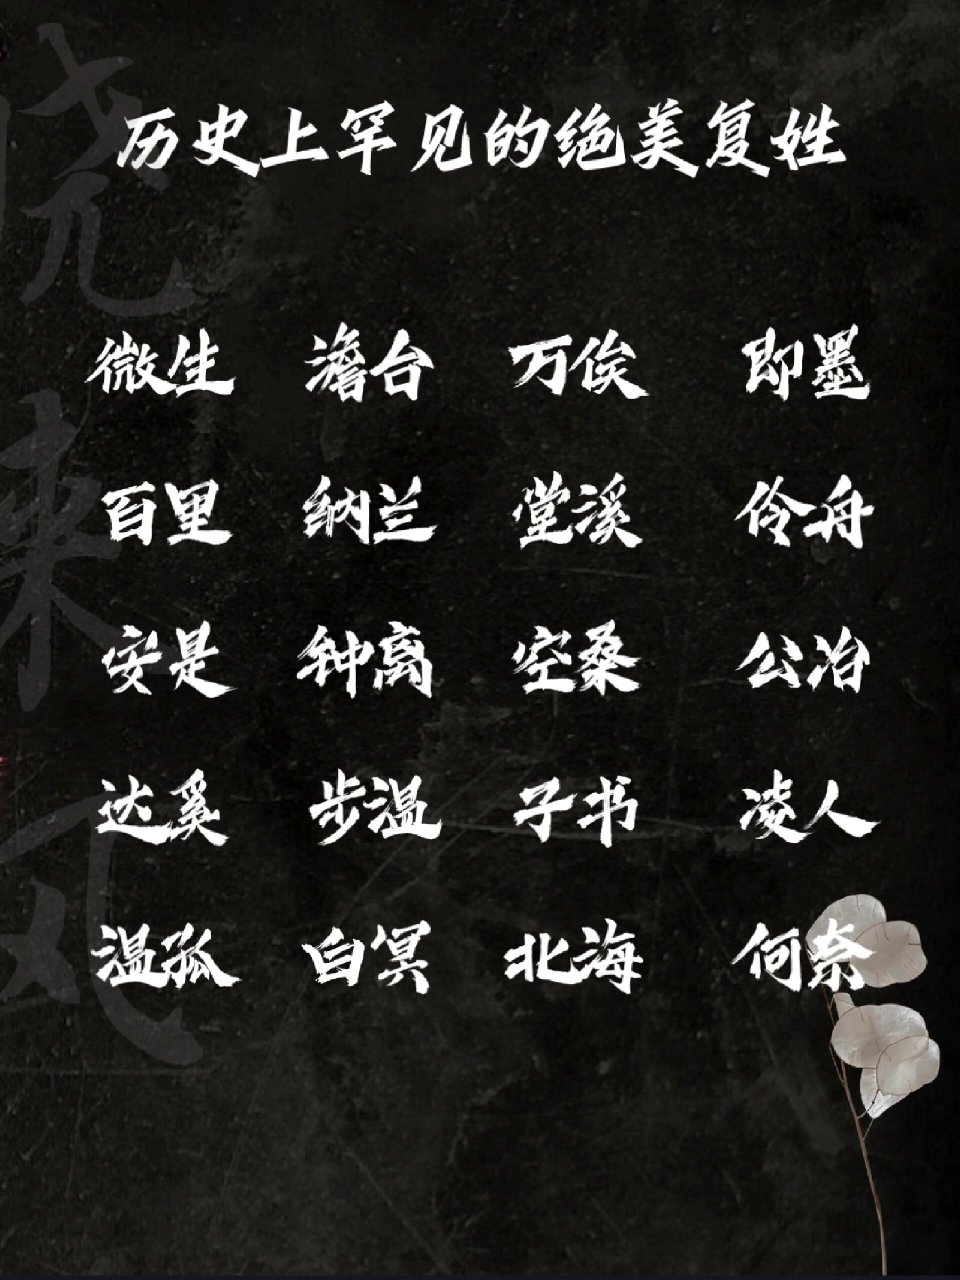 历史上罕见的绝美复姓
微生 澹台 万俟 即墨
百里 纳兰 堂溪 伶舟
安是 钟离 空桑 公冶
达奚 步温 子书 凌人
温孤 白冥 北海 何奈
晓来风